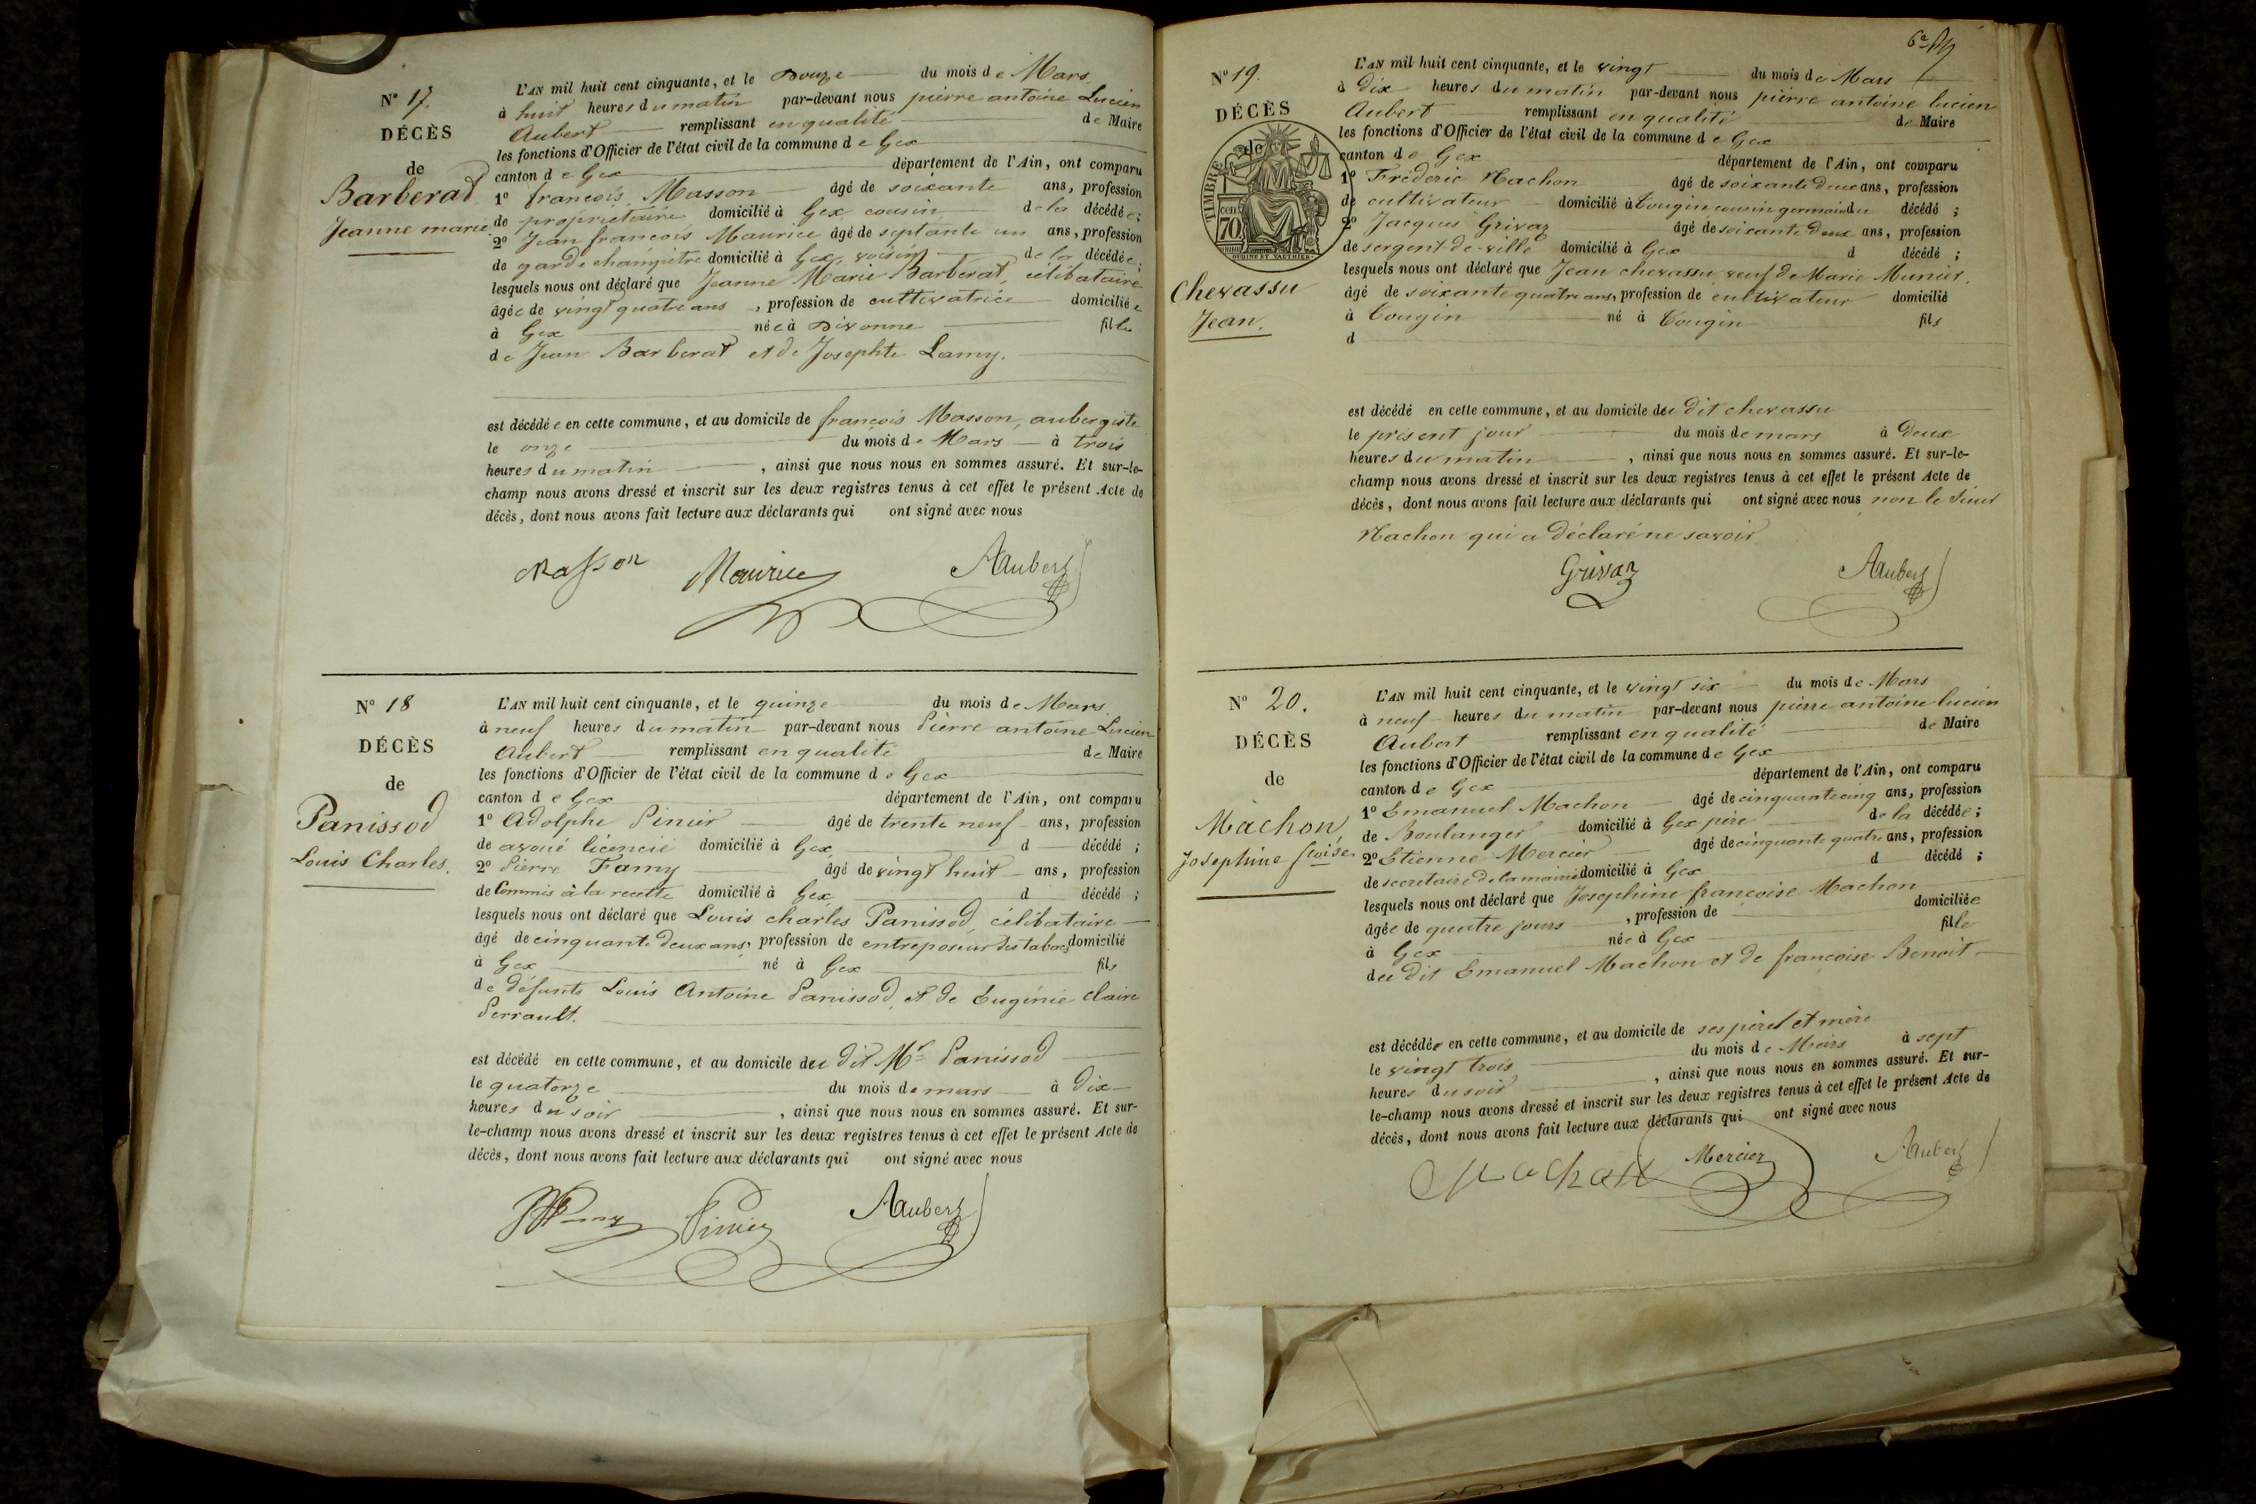 N° 17.
DÉCÈS
de
Barberat
Jeanne marie
L'AN mil huit cent cinquante, et le Douze du mois de Mars
à huit heures du matin par-devant nous pierre antoine Lucien
Aubert remplissant en qualité de Maire
les fonctions d'Officier de l'état civil de la commune de Gex
canton de Gex département de l'Ain, ont comparu
1° françois Masson âgé de soixante ans, profession
de propriétaire domicilié à Gex cousin de la décédée;
2° Jean françois Maurice âgé de septante un ans, profession
de garde champêtre domicilié à Gex, voisin de la décédée;
lesquels nous ont déclaré que Jeanne Marie Barberat, célibataire
âgée de vingt quatre ans, profession de cultivatrice domiciliée
à Gex née à Divonne fille
de Jean Barberat et de Josephte Lamy.
est décédée en cette commune, et au domicile de françois Masson, aubergiste
le onze du mois de Mars à trois
heures du matin, ainsi que nous nous en sommes assuré. Et sur-le-
champ nous avons dressé et inscrit sur les deux registres tenus à cet effet le présent Acte de
décès, dont nous avons fait lecture aux déclarants qui ont signé avec nous
Masson Maurice Aaubert
N° 18
DÉCÈS
de
Panissod
Louis Charles.
L'AN mil huit cent cinquante, et le quinze du mois de Mars
à neuf heures du matin par-devant nous Pierre antoine Lucien
Aubert remplissant en qualité de Maire
les fonctions d'Officier de l'état civil de la commune de Gex
canton de Gex département de l'Ain, ont comparu
1° Adolphe Pinier âgé de trente neuf ans, profession
de avoué licencié domicilié à Gex d décédé;
2° Pierre Famy âgé de vingt huit ans, profession
de Commis à la recette domicilié à Gex d décédé;
lesquels nous ont déclaré que Louis charles Panissod, célibataire
âgé de cinquante deux ans, profession de entreposeur des tabacs domicilié
à Gex né à Gex fils
de défunts Louis Antoine Panissod, et de Eugénie Claire
Perrault.
est décédé en cette commune, et au domicile du dit Mr Panissod
le quatorze du mois de mars à dix
heures du soir, ainsi que nous nous en sommes assuré. Et sur-
le-champ nous avons dressé et inscrit sur les deux registres tenus à cet effet le présent Acte de
décès, dont nous avons fait lecture aux déclarants qui ont signé avec nous
Pinier Aaubert
6e
N° 19.
DÉCÈS
de
TIMBRE
cen
70
OUDINE ET VAUTHIER
Chevassu
Jean.
L'AN mil huit cent cinquante, et le vingt du mois de Mars
à dix heures du matin par-devant nous pierre antoine lucien
Aubert remplissant en qualité de Maire
les fonctions d'Officier de l'état civil de la commune de Gex
canton de Gex département de l'Ain, ont comparu
1° Fréderic Machon âgé de soixante deux ans, profession
de cultivateur domicilié à Tougin cousin germain du décédé;
2° Jacques Grivaz âgé de soixante deux ans, profession
de sergent de ville domicilié à Gex d décédé;
lesquels nous ont déclaré que Jean chevassu veuf de Marie Munier
âgé de soixante quatre ans, profession de cultivateur domicilié
à Tougin né à Tougin fils
d
est décédé en cette commune, et au domicile du dit chevassu
le présent jour du mois de mars à Deux
heures du matin, ainsi que nous nous en sommes assuré. Et sur-le-
champ nous avons dressé et inscrit sur les deux registres tenus à cet effet le présent Acte de
décès, dont nous avons fait lecture aux déclarants qui ont signé avec nous non le Sieur
Machon qui a déclaré ne savoir
Grivaz Aaubert
N° 20.
DÉCÈS
de
Machon
Josephine fcoise
L'AN mil huit cent cinquante, et le vingt six du mois de Mars
à neuf heures du matin par-devant nous pierre antoine lucien
Aubert remplissant en qualité de Maire
les fonctions d'Officier de l'état civil de la commune de Gex
canton de Gex département de l'Ain, ont comparu
1° Emanuel Machon âgé de cinquante cinq ans, profession
de Boulanger domicilié à Gex père de la décédée;
2° Etienne Mercier âgé de cinquante quatre ans, profession
de secrétaire de la mairie domicilié à Gex d décédé;
lesquels nous ont déclaré que Josephine françoise Machon
âgée de quatre jours, profession de domiciliée
à Gex née à Gex fille
du dit Emanuel Machon et de françoise Benoit
est décédée en cette commune, et au domicile de ses père et mère
le vingt trois du mois de Mars à sept
heures du soir, ainsi que nous nous en sommes assuré. Et sur-
le-champ nous avons dressé et inscrit sur les deux registres tenus à cet effet le présent Acte de
décès, dont nous avons fait lecture aux déclarants qui ont signé avec nous
Machon Mercier Aaubert